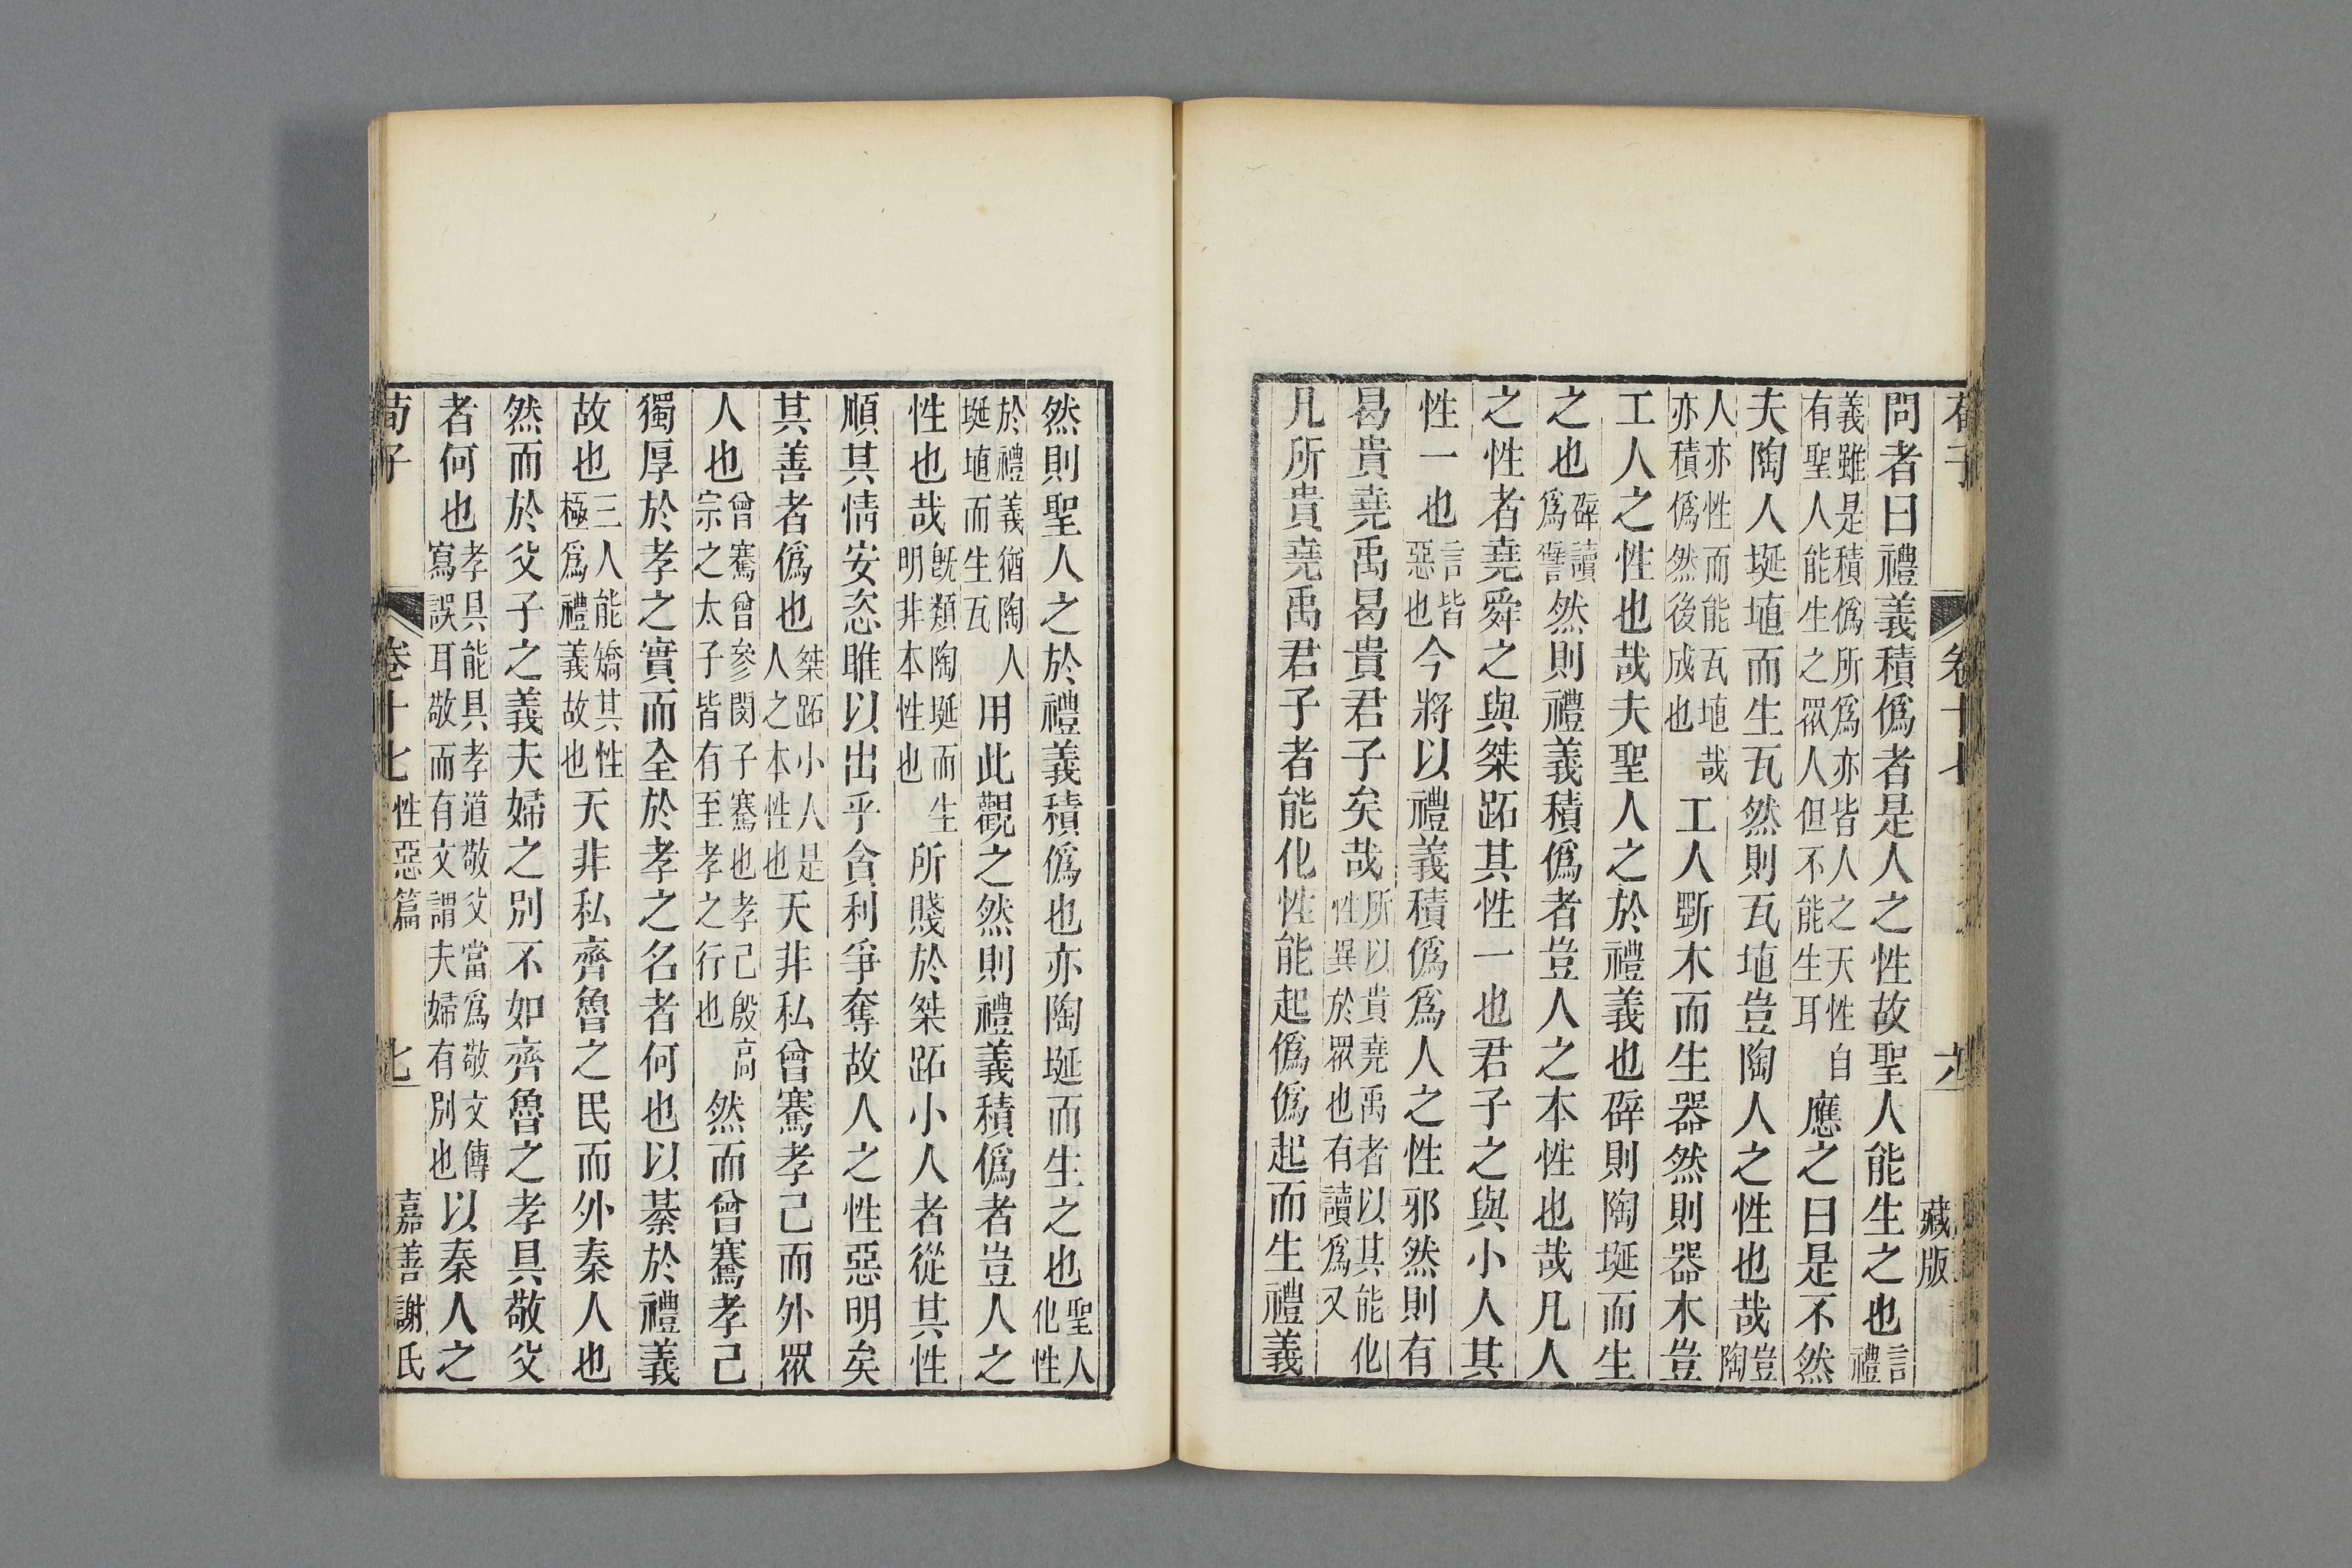 荀子 卷十七 六 藏版
問者曰禮義積僞者是人之性故聖人能生之也言禮
義雖是積僞所爲亦皆人之天性自有聖人能生之眾人但不能生耳應之曰是不然
夫陶人埏埴而生瓦然則瓦埴豈陶人之性也哉豈陶
人亦性而能瓦埴哉亦積僞然後成也工人斲木而生器然則器木豈
工人之性也哉夫聖人之於禮義也辟則陶埏而生
之也辟讀爲譬然則禮義積僞者豈人之本性也哉凡人
之性者堯舜之與桀跖其性一也君子之與小人其
性一也言皆惡也今將以禮義積僞爲人之性邪然則有
曷貴堯禹曷貴君子矣哉所以貴堯禹者以其能化性異於眾也有讀爲又
凡所貴堯禹君子者能化性能起僞僞起而生禮義
然則聖人之於禮義積僞也亦陶埏而生之也聖人化性
於禮義猶陶人埏埴而生瓦用此觀之然則禮義積僞者豈人之
性也哉旣類陶埏而生明非本性也所賤於桀跖小人者從其性
順其情安恣睢以出乎貪利爭奪故人之性惡明矣
其善者僞也桀跖小人是人之本性也天非私曾騫孝己而外眾
人也曾騫曾參閔子騫也孝己殷高宗之太子皆有至孝之行也然而曾騫孝己
獨厚於孝之實而全於孝之名者何也以綦於禮義
故也三人能矯其性極爲禮義故也天非私齊魯之民而外秦人也
然而於父子之義夫婦之別不如齊魯之孝具敬父
者何也孝具能具孝道敬父當爲敬文傳寫誤耳敬而有文謂夫婦有別也以秦人之
荀子 卷十七 性惡篇 七 嘉善謝氏